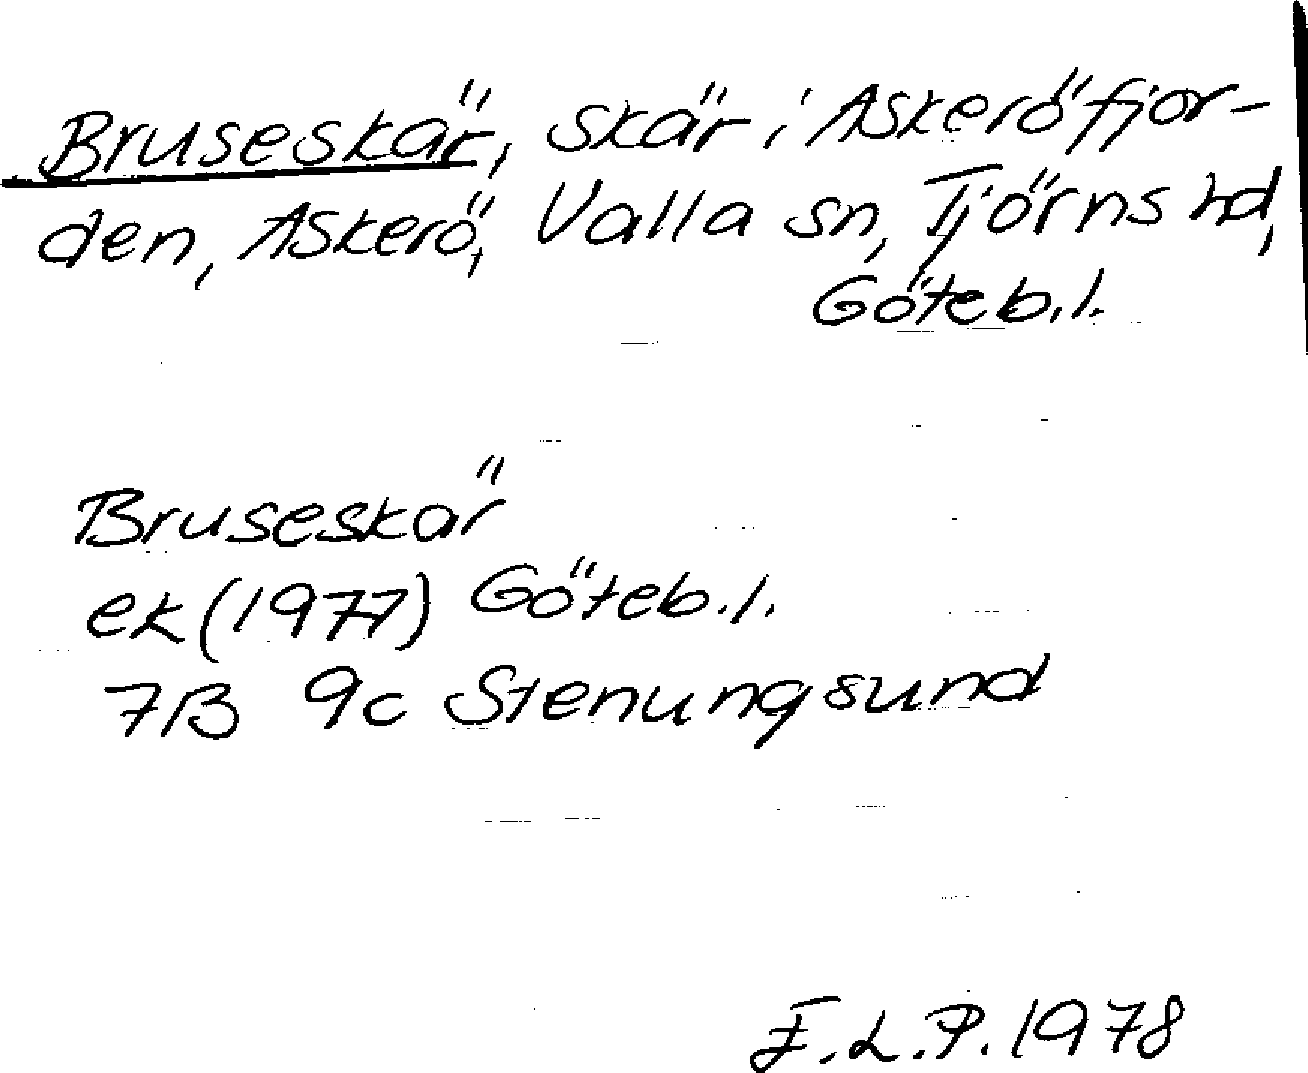 Bruseskär, skär i Askeröfjor-
den, Askerö, Valla sn, Tjörns hd,
Göteb.l.
Bruseskär
ek (1977) Göteb.l.
7B 9c Stenungsund
E.L.P. 1978